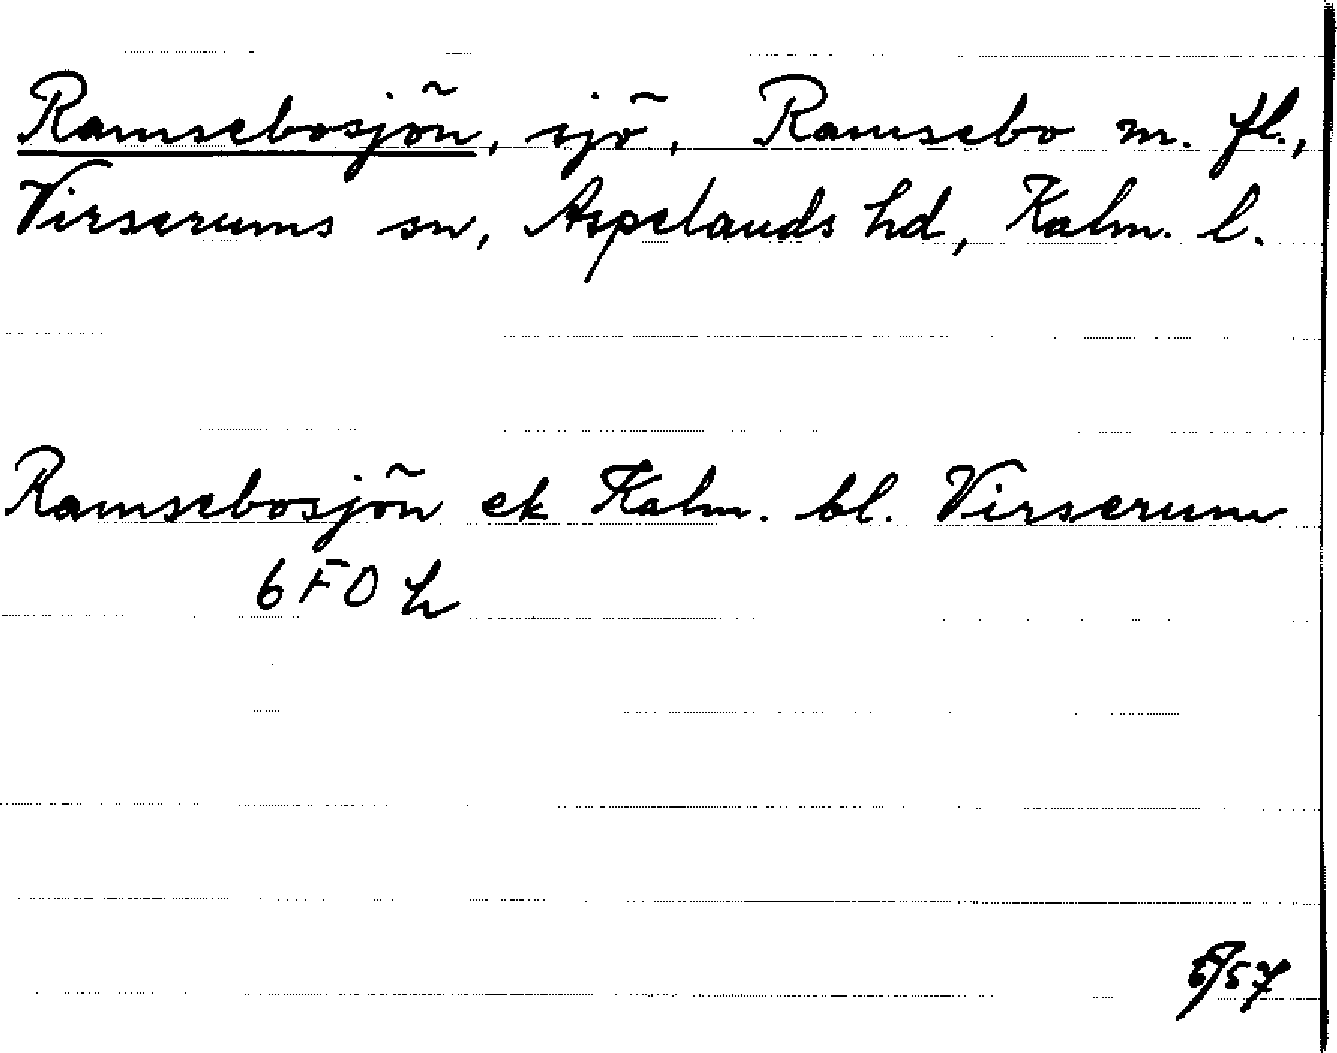 Ramsebosjön, sjö, Ramsebo m. fl.,
Virserums sn, Aspelands hd, Kalm. l.
Ramsebosjön ek Kalm. bl. Virserum
6 F O h